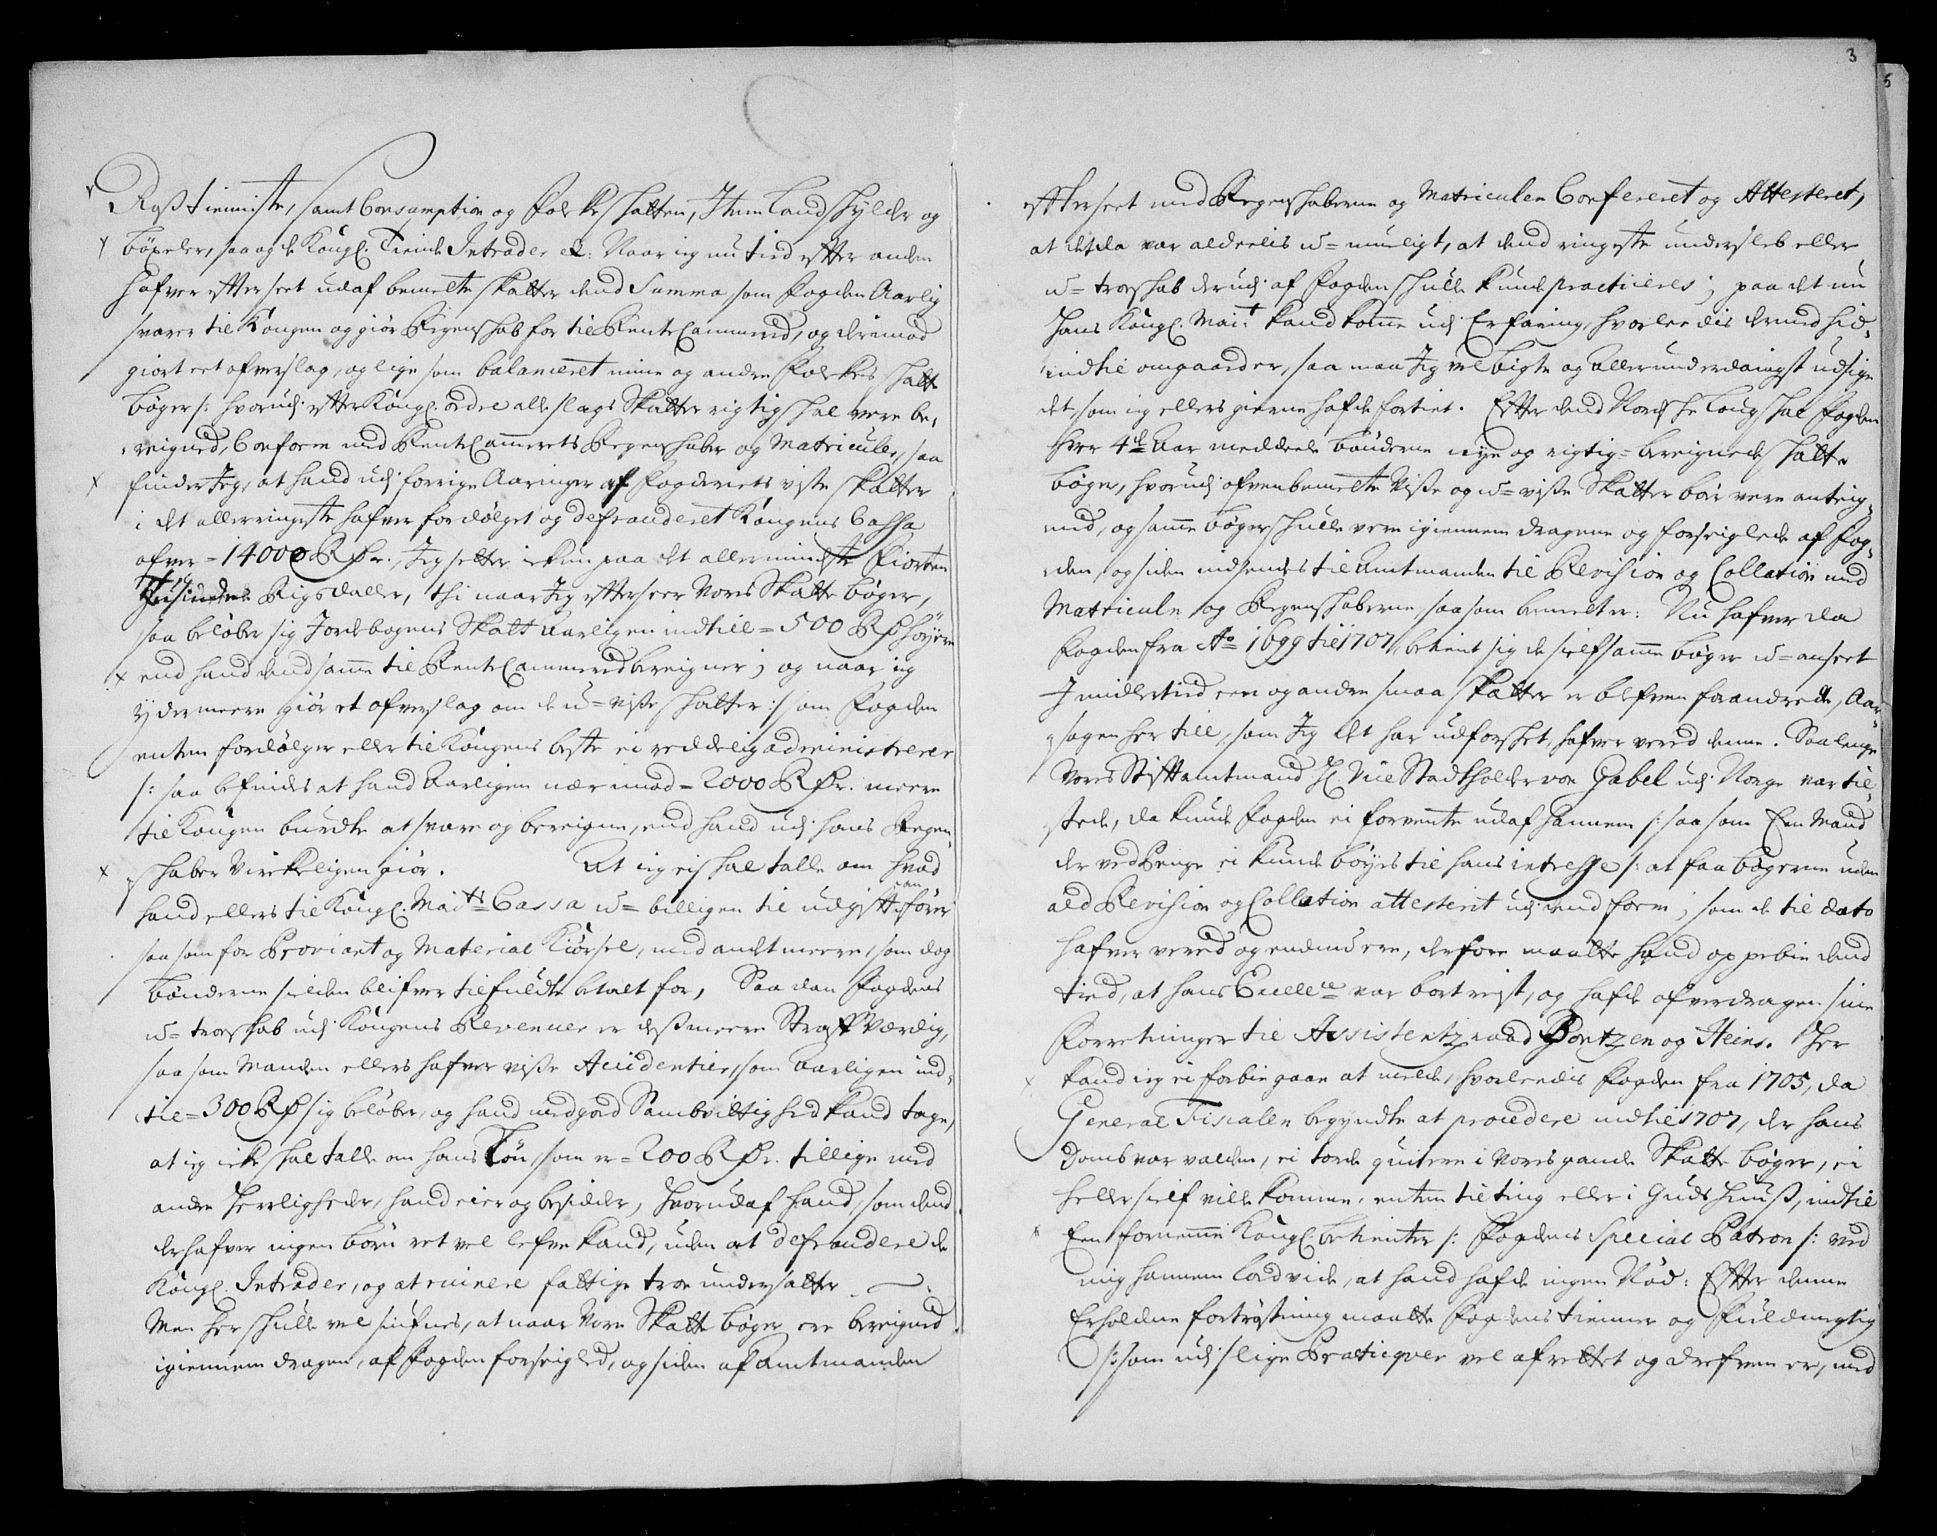 3
5
Roßtienniste, samt Consumption og Folke Skatten, Item Landskylder og
böxeler, saa og de Kongl. Tiende Intrader etc: Naar ieg nu tid efter anden
hafver efterseet udaf bemelte skatter dend Summa, som Fogden Aarlig
svarer til Kongen og giör Regenskab for til Rente Cammered, og derimod
giort et ofverslag, og lige som balanceret mine og andre Folkes Skatte
böger /: hvorudi efter Kongl. ordre alle slags Skatter rigtig skal vere be-
reigned, Conform med Rente Cammerets Regenskaber og Matriculer, saa
finder Jeg, at hand udi forrige Aaringer af Fogderiets visse skatter
i det allerringeste hafver fordölget og defrauderet Kongens Cassa
ofver = 14000 Rdr., Jeg setter ickun paa det allermindste Fiorten
tusinde Rigsdaller, thi naar Jeg efterseer Vores Skatte böger,
saa belöber sig Jordebogens Skatt Aarligen indtill = 500 Rd höyere
end hand dend samme til Rente Cammered bereigner; og naar ieg
ydermeere giör et ofverslag om de u=visse skatter: /: som Fogden
enten fordölger eller til Kongens beste ei reddelig administrerer
/: saa befindes at hand Aarligen nær imod = 2000 Rdr. meere
til Kongen burdte at svare og bereigne, end hand udi hans Regen-
skaber Virkeligen giör. At ieg ei skal talle om hvad
hand ellers til Kongl. Maits Cassa u=billigen til udgift anförer
saa som for Proviant og Material Kiörsel, med andt meere, som dog
bönderne sielden blifver tilfulde betalt for, Saadan Fogdens
u=troskab udi Kongens Revenuer er deß meere Straff Værdig,
saa som Manden ellers hafver visse Accidentier, som Aarligen ind-
til = 300 Rd sig belöber, og hand med god Samvittighed kand tage,
at ieg icke skal talle om hans Lön, som er = 200 Rdr. tillige med
andre Herligheder, hand eier og besidder, hvorudaf hand, som dend
der hafver ingen börn ret vel lefve kand, uden at defraudere de
Kongl. Intrader, og at ruinere fattige troe undersatter.
Men her skulle vel siufnes, at naar Vore Skatte böger ere bereigned
igiennem dragen, af Fogden forseigled, og siden af Amtmanden
efterseet med Regenskaberne og Matriculen Confereret og Attesteret,
at det da var aldeelis u=mueligt, at dend ringeste underslæb eller
u=troskab derudi af Fogden skulle kunde practiceres; paa det nu
Hans Kongl. Mait kand komme udi Erfaring, hvorledis dermed hid-
indtil omgaardes, saa maa Jeg vel bigte og Allerunderdanigst udsige
det, som ieg ellers gierne hafde fortiet. Efter dend Norske Loug skal Fogden
hver 4de Aar meddeele bönderne nye og rigtig-bereignede skatte
böger, hvorudi ofvenbemelte Visse og u=visse Skatter bör vere anteig-
ned, og samme böger skulle vere igiennem dragene og forseiglede af Fog-
den, og siden indsendes til Amtmanden til Revision og Collation med
Matriculn og Regenskaberne saasom bemelter: Nu hafver da
Fogden fra Ao 1699 til 1707, betient sig de sielfsamme böger u=anseet
Imidlertiid een og anden smaa Skatter er blefven forandrede, Aar-
sagen hertill, som Jeg det har udforsket, hafver vered denne. Saa lenge
Vores Stiftamtmand H. Vice Stadtholder von Gabel udi Norge var til-
stede, da kunde Fogden ei forvente udaf hannem /: saasom Een Mand
der ved Penge ei kunde böyes til hans intresse /: at faa bögerne uden
ald Revision og Collation attesterit udi dend form; som de til dato
hafver vered og endnu ere, derfore maatte hand oppebie dend
tied, at hans Excellce var bortreist, og hafde ofverdragen sine
Forretninger til Assistentzraad Pontzen og Heins. Her
kand ieg ei forbiegaae at melde, hvorledis Fogden fra 1705, da
General Fiscalen begyndte at procedere indtil 1707, der hans
Domb var falden, ei torde quitere i Vores gamle Skatte böger, ei
heller sielf ville komme, enten til ting eller i Guds Huuß, indtil
Een fornemme Kongl. betienter /: Fogdens Special Patron /: ved
mig hannem lod vide, at hand hafde ingen Nöd: Efter denne
Erholdene fortröstning maatte Fogdens tienner og Fuldmegtig
/: som udi slige Praticquer vel afrettet og drefven er, med